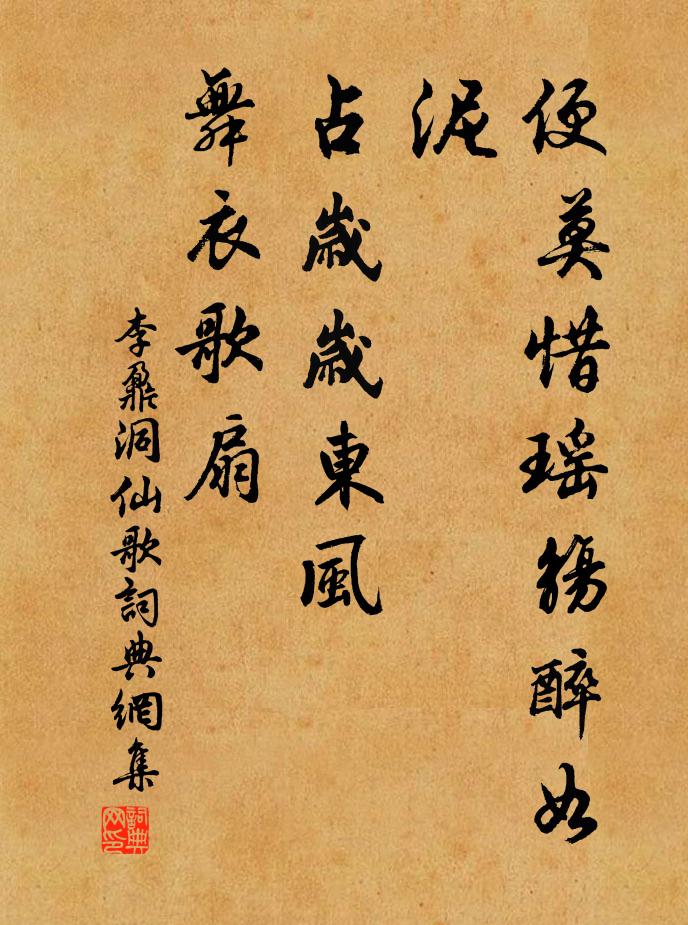 便莫惜瑶觴醉如
泥
占歲歲東風
舞衣歌扇
李鼐洞仙歌詞典網集
詞典网印